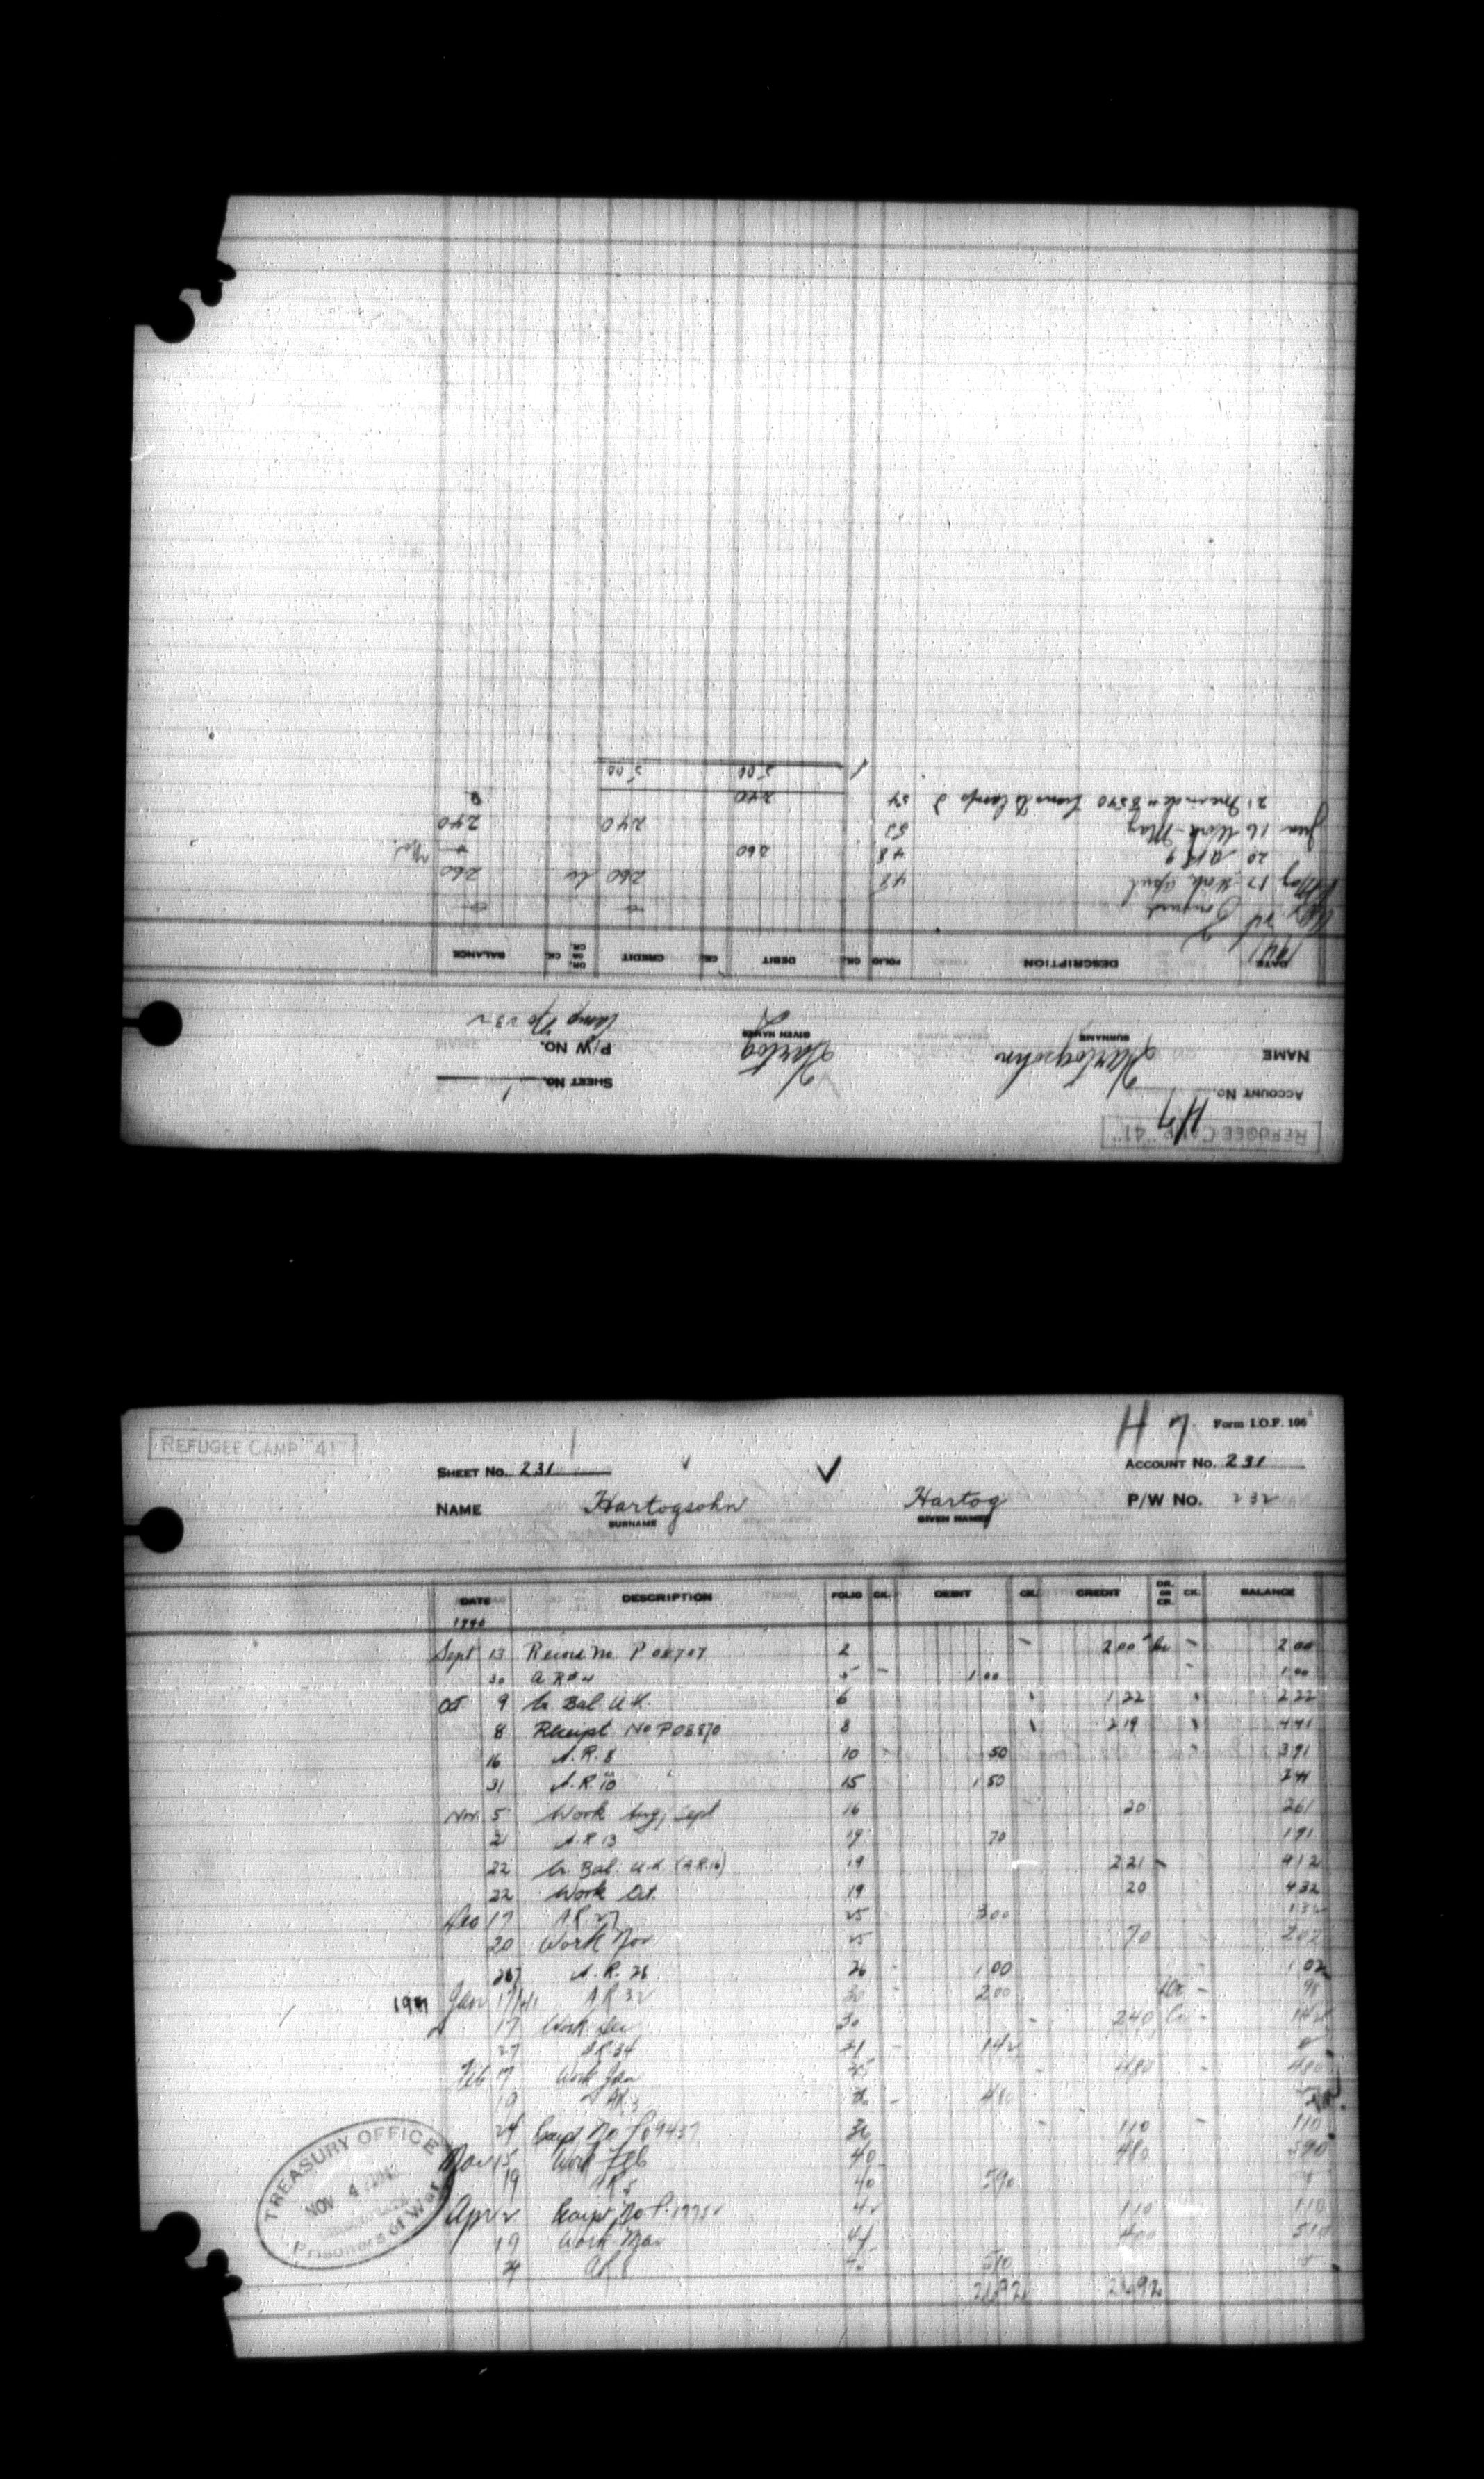 REFUGEE CAMP "41"
H 7
ACCOUNT No.
SHEET No. 1
NAME Hartogsohn Hartog P/W No. Camp No 232
SURNAME GIVEN NAMES
DATE DESCRIPTION FOLIO CK. DEBIT CK. CREDIT DR. OR CR. CK. BALANCE
1941
May 17 Work April 48 260 Cr 260
20 AR 9 48 260
June 16 Work May 53 240 240
21 8540 Trans to Camp 54 240 0
500 500
REFUGEE CAMP "41"
H 7 Form I.O.F. 106
SHEET No. 231 ACCOUNT No. 231
NAME Hartogsohn Hartog P/W No. 232
SURNAME GIVEN NAMES
DATE DESCRIPTION FOLIO CK. DEBIT CK. CREDIT DR. OR CR. CK. BALANCE
1940
Sept 13 No. P 08707 2 200 Cr 200
30 A R # 4 5 1 00 1 00
Oct 9 Cr Bal U.K. 6 1 22 2 22
8 Receipt No P08870 8 219 441
16 A.R. 8 10 50 391
31 A.R. 10 15 1 50 241
Nov. 5 Work Aug, Sept 16 20 261
21 A.R 13 19 70 191
22 Cr Bal. U.K. (A.R.16) 19 221 412
22 Work Oct. 19 20 432
Dec 17 A.R. 27 25 300 132
20 Work Nov 25 70 202
A.R. 28 26 1 00 1 02
1941 Jan 17/41 AR 32 30 200 Dr 98
17 Work Dec 30 240 Cr 142
27 AR 34 31 142
Feb 17 Work Jan 35 480 480
19 AR 3 480
24 No P09437 36 110 110
Mar 15 Work Feb 40 480 590
19 AR 5 40 590
Apr 2 No 42 110 110
19 Work Mar 44 400 510
24 AR 8 45 510
2692 2692
TREASURY OFFICE
NOV 4
Prisoners of War